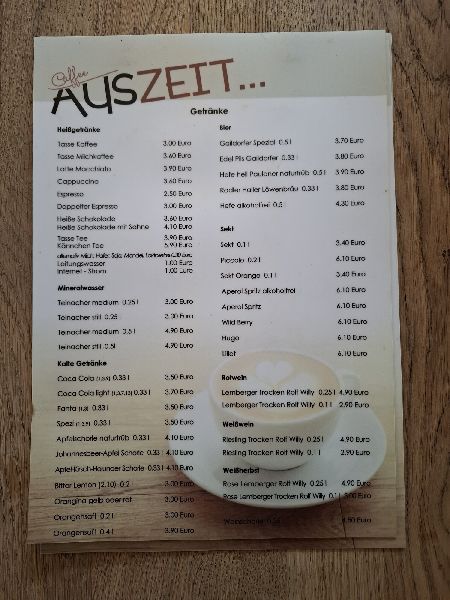 Coffee
AUSZEIT...
Getränke
Heißgetränke
Tasse Kaffee 3.00 Euro
Tasse Milchkaffee 3.60 Euro
Latte Macchiato 3.90 Euro
Cappuccino 3.60 Euro
Espresso 2.50 Euro
Doppelter Espresso 3.00 Euro
Heiße Schokolade 3.60 Euro
Heiße Schokolade mit Sahne 4.10 Euro
Tasse Tee 3.90 Euro
Kännchen Tee 5.90 Euro
Leitungswasser 1.00 Euro
Internet - Strom 1.00 Euro
Mineralwasser
Teinacher medium 0.25 l 3.00 Euro
Teinacher still 0.25 l 3.00 Euro
Teinacher medium 0.5 l 4.90 Euro
Teinacher still 0.5l 4.90 Euro
Kalte Getränke
Coca Cola 0.33 l 3.50 Euro
Coca Cola light 0.33 l 3.70 Euro
Fanta 0.33 l 3.50 Euro
Spezi 0.33 l 3.50 Euro
Apfelschorle naturtrüb 0.33 l 4.10 Euro
Johannesbeer-Apfel Schorle 0.33 l 4.10 Euro
Apfel-Kirsch-Holunder Schorle 0.33 l 4.10 Euro
Bitter Lemon (2,10) 0.2 l 3.00 Euro
Orangina gelb oder rot 3.00 Euro
Orangensaft 0.2 l 3.00 Euro
Orangensaft 0.4 l 3.90 Euro
Bier
Gaildorfer Spezial 0.5 l 3.70 Euro
Edel Pils Gaildorfer 0.33 l 3.80 Euro
Hefe hell Paulaner naturtrüb 0.5 l 3.90 Euro
Radler Haller Löwenbräu 0.33 l 3.80 Euro
Hefe alkoholfrei 0.5 4.30 Euro
Sekt
Sekt 0.1 l 3.40 Euro
Piccolo 0.2 l 6.10 Euro
Sekt Orange 0.1 l 3.40 Euro
Aperol Spritz alkoholfrei 6.10 Euro
Aperol Spritz 6.10 Euro
Wild Berry 6.10 Euro
Hugo 6.10 Euro
Lillet 6.10 Euro
Rotwein
Lemberger Trocken Rolf Willy 0.25 l 4.90 Euro
Lemberger Trocken Rolf Willy 0.1 l 2.90 Euro
Weißwein
Riesling Trocken Rolf Willy 0.25 l 4.90 Euro
Riesling Trocken Rolf Willy 0.1 l 2.90 Euro
Weißherbst
Rose Lemberger Rolf Willy 0.25 l 4.90 Euro
Rose Lemberger Trocken Rolf Willy 0.1 l 3.00 Euro
Weinschorle 4.50 Euro